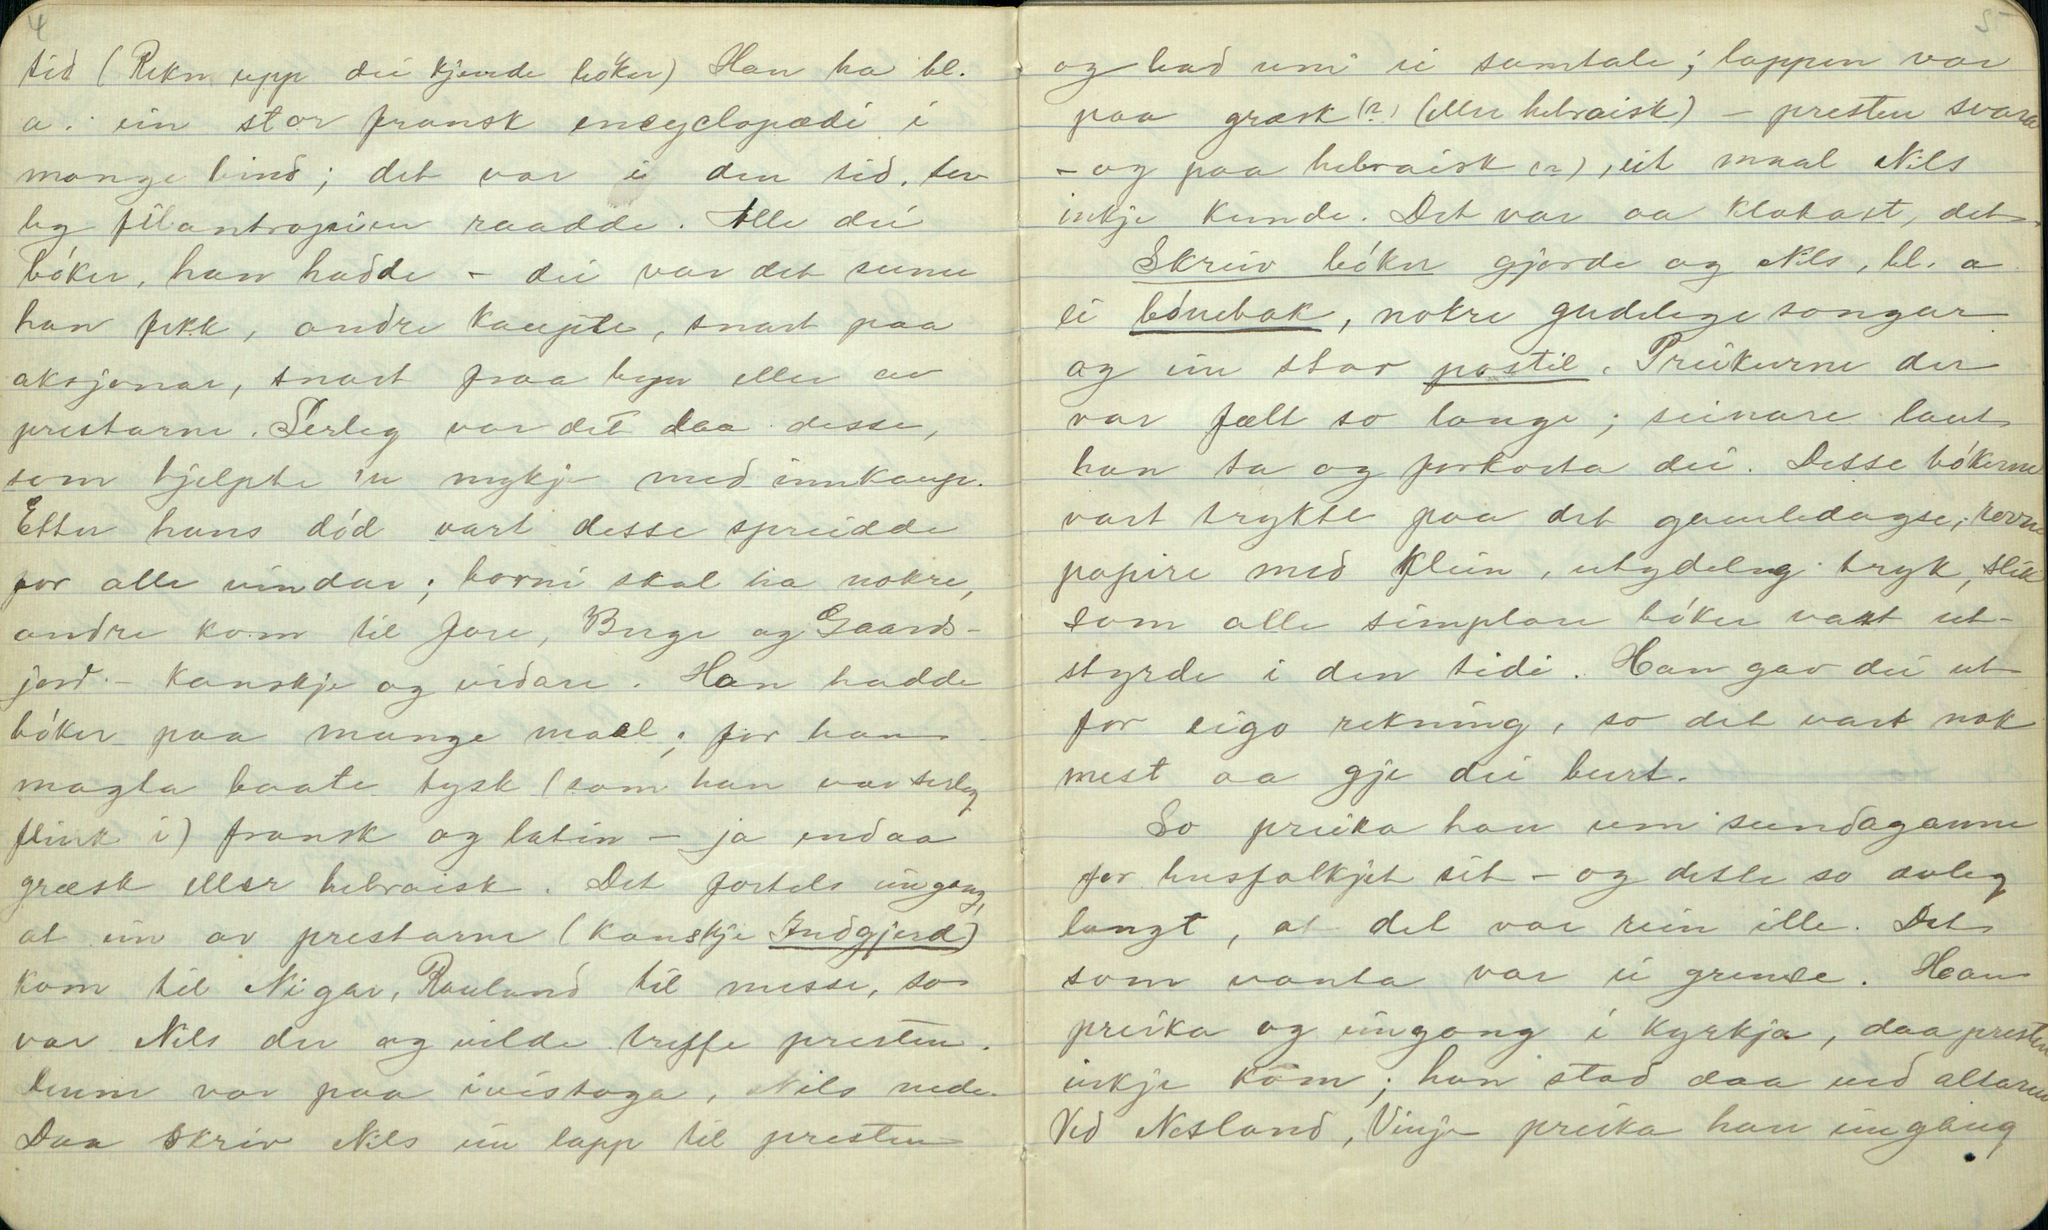 4
tid (Rekn upp dei kjende bøker) Han ha bl.
a. ein stor fransk encyclopædi i
mange bind; det var i den tid, sev
leg filantropien raadde. Alle dei
bøker, han hadde – dei var det sume
han fekk, andre kaupte, snart paa
aksjonar, snart fraa byar eller av
prestarne. Serleg var det daa desse,
som hjelpte 'n mykje med innkaup.
Etter hans død vart desse spreidde
for alle vindar; borni skal ha nokre,
andre kom til Jore, Berge og Gaards-
jord – kanskje og vidare. Han hadde
bøker paa mange maal; for han
magta baate tysk (som han var serleg
flink i) fransk og latin – ja endaa
græsk eller hebraisk. Det fortels eingong,
at ein av prestarne (kanskje Indgjerd)
kom til Nigar, Rauland til messe, so
var Nils der og vilde treffe presten.
Denne var paa ivistoga, Nils nede.
Daa skriv Nils ein lapp til presten
5
og bad um ei samtale; lappen var
paa græsk (?) (eller hebraisk) – presten svara
– og paa hebraisk (?), eit maal Nils
inkje kunde. Det var aa klokast, det.
Skreiv bøker gjorde og Nils, bl. a
ei bønebok, nokre gudelege songar
og ein stor postil. Preikurne der
var fælt so lange; seinare laut
han ta og forkorta dei. Desse bøkerne
vart trykte paa det gamledagse,
papire med klein, utydeleg tryk, slik
som alle simplare bøker vart ut-
styrde i den tidi. Han gav dei ut
for eigo rekning, so det vart nok
mest aa gje dei burt.
So preika han um sundaganne
for husfolkjet sit – og dette so ovleg
langt, at det var rein ille. Det
som vanta var ei grende. Han
preika og eingong i kyrkja, daa presten
inkje kom; han stod daa ved altaren
Ved Nesland, Vinje preika han eingang